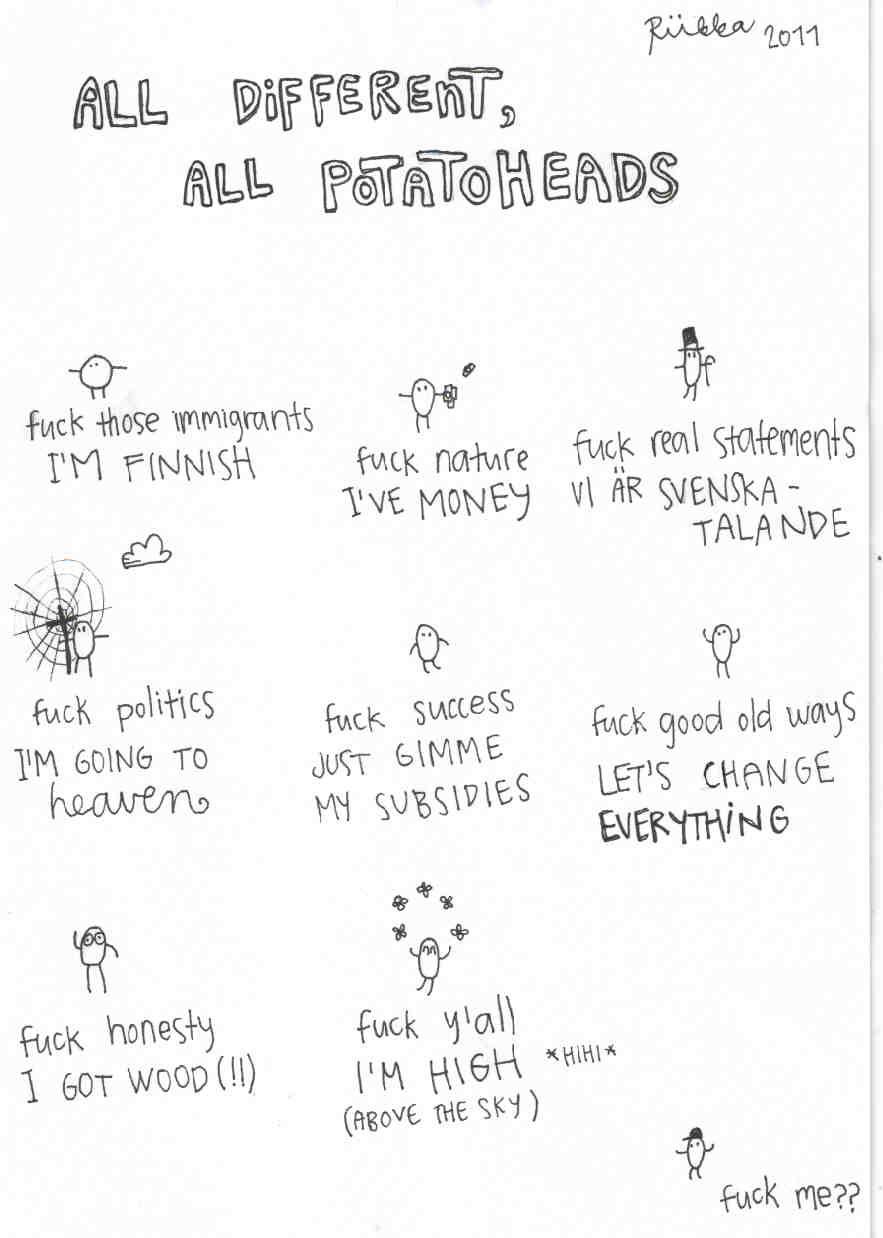 Riikka 2011
ALL DiFFERENT,
ALL POTATOHEADS
fuck those immigrants
I'M FINNISH
fuck nature
I'VE MONEY
fuck real statements
VI ÄR SVENSKA-
TALANDE
fuck politics
I'M GOING TO
heaven
fuck success
JUST GIMME
MY SUBSIDIES
fuck good old ways
LET'S CHANGE
EVERYTHiNG
fuck honesty
I GOT WOOD(!!)
fuck y'all
I'M HIGH *HiHI*
(ABOVE THE SKY)
fuck me??